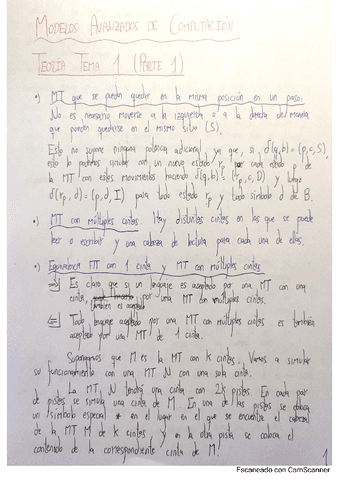 MODELOS AVANZADOS DE COMPUTACIÓN
TEORÍA TEMA 1 (PARTE 1)
•) MT que se pueden quedar en la misma posición en un paso.
No es necesario moverse a la izquierda o a la derecha
que pueden quedarse en el mismo sitio (S).
Esto no supone ninguna potencia adicional, ya que, si δ(q,b) = (p,c,S),
esto lo podemos simular con un nuevo estado rp cada estado p de
la MT con estos movimientos haciendo δ(q,b) = (rp,c,D) y luego
δ(rp,d) = (p,d,I) para todo estado rp y todo símbolo d de B.
•) MT con múltiples cintas. Hay distintas cintas en las que se puede
leer o escribir y una cabeza de lectura para cada una de ellas.
•) Equivalencia MT con 1 cinta y MT con múltiples cintas
⇒) Es claro que si un lenguaje es aceptado por una MT con una
cinta, también es aceptado por una MT con múltiples cintas.
⇐) Todo lenguaje aceptado por una MT con múltiples cintas es también
aceptado por una MT de 1 cinta.
Supongamos que M es la MT con k cintas. Vamos a simular
su funcionamiento con una MT N con una sola cinta.
La MT N tendrá una cinta con 2k pistas. En cada par
de pistas se simula una cinta de M. En una de las pistas se coloca
un símbolo especial * en el lugar en el que se encuentre el cabezal
de la MT M de k cintas y en la otra pista se coloca el
contenido de la correspondiente cinta de M.
1
Escaneado con CamScanner